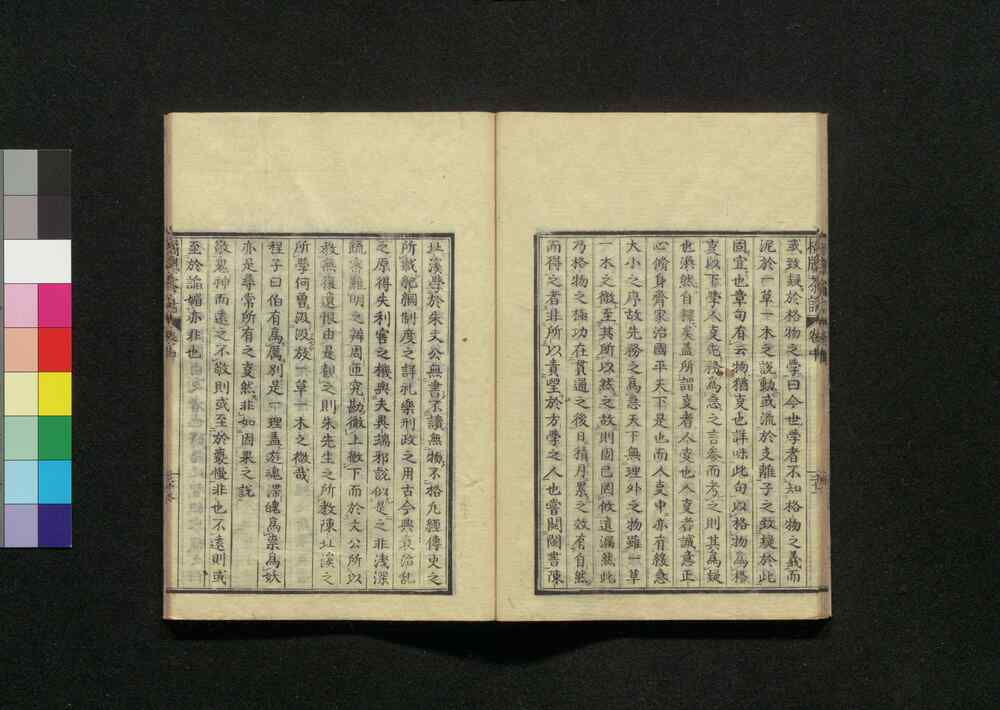 或致疑於格物之學曰今世學者不知格物之義而
泥於一草一木之說動或流於支離子之致疑於此
固宜也章句有云物猶事也詳味此句以格物為格
事以下學人事先務為急之言參而考之則其為疑
也渙然自釋矣盖所謂事者人事也人事者誠意正
心脩身齊家治國平天下是也而人事中亦有緩急
大小之序故先務之為急天下無理外之物雖一草
一木之微至其所以然之故則固已因攸遺漏然此
乃格物之極功在貫通之後日積月累之效有自然
而得之者非所以責望於方學之人也嘗閱閩書陳
北溪學於朱文公無書不讀無物不格凡經傳史之
所載紀綱制度之詳礼樂刑政之用古今興衰治乱
之原得失利害之機與夫異端邪說似是之非淺深
疏密難明之辨周匝究勘徹上徹下而於文公所以
教無復遺恨由是觀之則朱先生之所教陳北溪之
所學何曾汲汲於一草一木之微哉
程子曰伯有為厲別是一理盖游魂滯魄為祟為妖
亦是尋常所有之変然非如因果之說
敬鬼神而遠之不敬則或至於褻慢非也不遠則或
至於諂媚亦非也